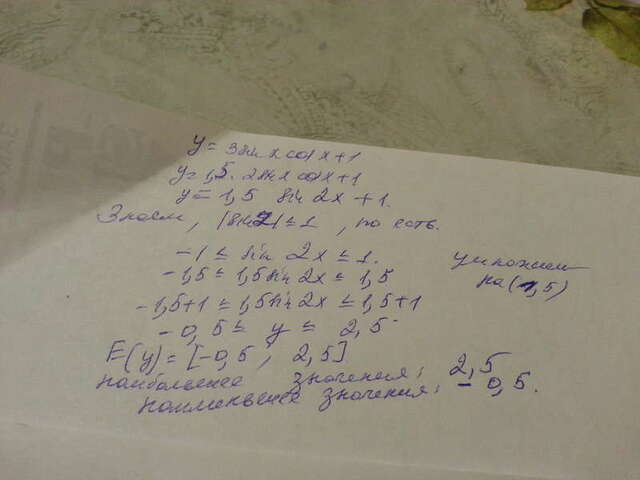 y = 3sin x cos x + 1
y = 1,5 · 2sin x cos x + 1
y = 1,5 sin 2x + 1.
Знаем, |sin z| ≤ 1, то есть.
-1 ≤ sin 2x ≤ 1. умножим
-1,5 ≤ 1,5 sin 2x ≤ 1,5 на (1,5)
-1,5+1 ≤ 1,5 sin 2x ≤ 1,5+1
-0,5 ≤ y ≤ 2,5
E(y) = [-0,5, 2,5]
наибольшее значения: 2,5
наименьшее значения: -0,5.